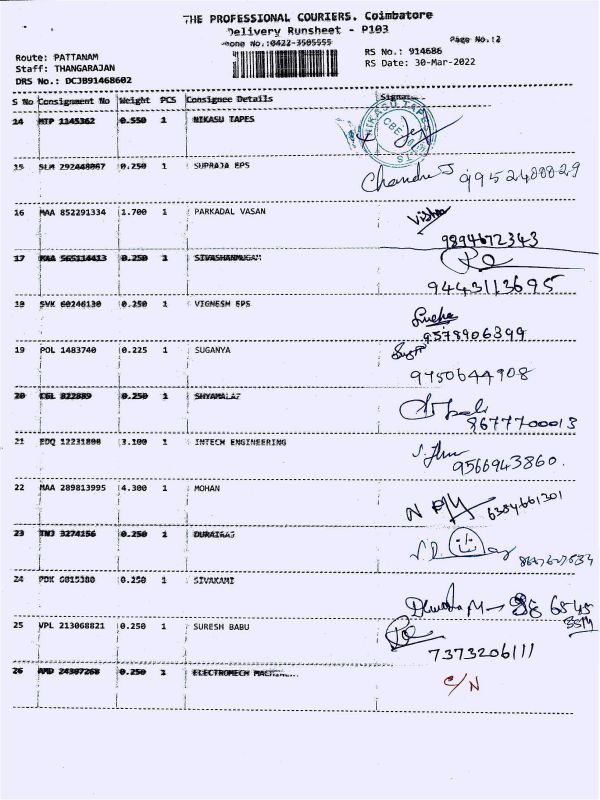 THE PROFESSIONAL COURIERS. Coimbatore
Delivery Runsheet - P103
Phone No.:0422-3505555
Page No.:2
Route: PATTANAM
RS No.: 914686
Staff: THANGARAJAN
RS Date: 30-Mar-2022
DRS No.: DCJB91468602
S No Consignment No Weight PCS Consignee Details
14 MTP 1145362 0.550 1 NIKASU TAPES
NIKASU TAPES
15 SLM 292448067 0.250 1 SUPRAJA EPS
9952488829
16 MAA 852291334 1.700 1 PARKADAL VASAN
9894672343
17 MAA 565114413 0.250 1 SIVASHANMUGAM
9443113695
18 SVK 60246130 0.250 1 VIGNESH EPS
9578906399
19 POL 1483740 0.225 1 SUGANYA
9750644908
20 CGL 822889 0.250 1
8677700013
21 EDQ 12231808 3.100 1 INTECH ENGINEERING
9566943860.
22 MAA 289813995 4.300 1 MOHAN
6384661301
23 TNJ 3274156 0.250 1
24 PDK 6015380 0.250 1 SIVAKAMI
25 VPL 213068821 0.250 1 SURESH BABU
7373206111
26 AMD 24307268 0.250 1 ELECTROMECH
C/N